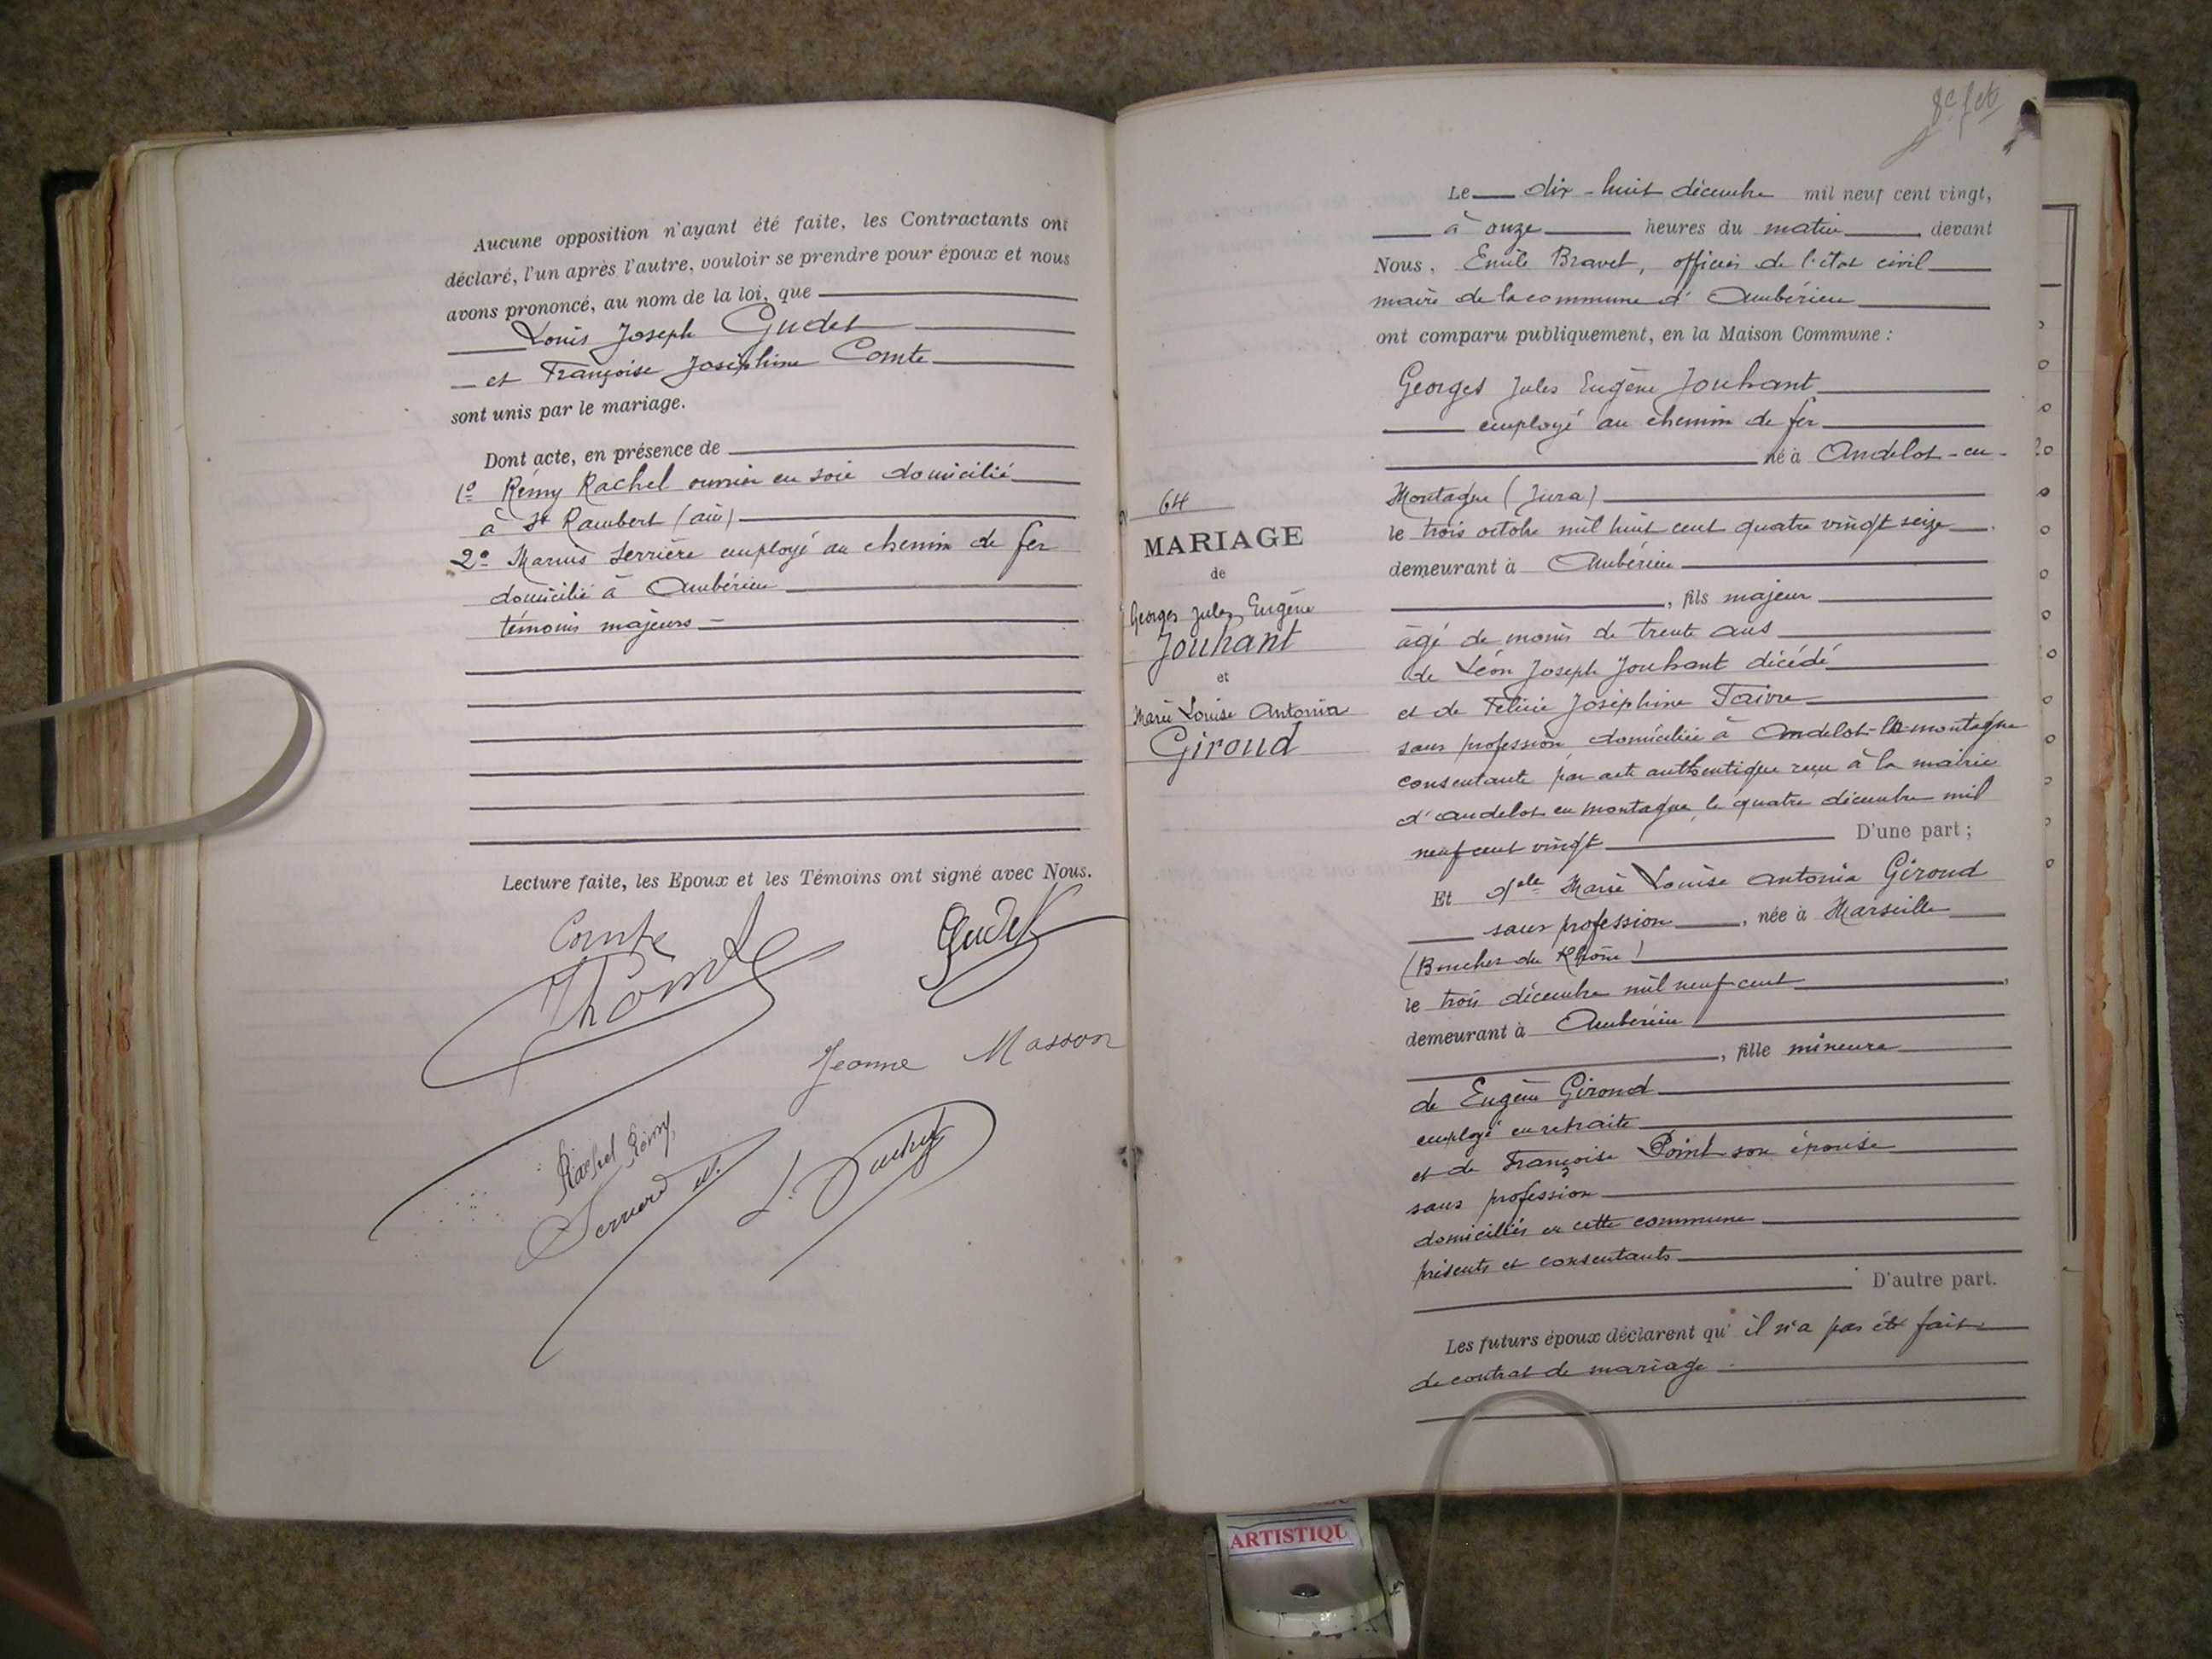 Aucune opposition n'ayant été faite, les Contractants ont
déclaré, l'un après l'autre, vouloir se prendre pour époux et nous
avons prononcé, au nom de la loi, que
Louis Joseph Gudet
et Françoise Joséphine Comte
sont unis par le mariage.
Dont acte, en présence de
1º Rémy Rachel ouvrier en soie domicilié
à St Rambert (ain)
2º Marius Serrière employé au chemin de fer
domicilié à Ambérieu
témoins majeurs
Lecture faite, les Epoux et les Témoins ont signé avec Nous.
Comte
Gudet
Jeanne Masson
Rachel Rémy
64
MARIAGE
de
Georges Jules Eugène
Jouhant
et
Marie Louise Antonia
Giroud
Le dix-huit décembre mil neuf cent vingt,
à onze heures du matin, devant
Nous, Emile Bravet, officier de l'état civil
maire de la commune d'Ambérieu
ont comparu publiquement, en la Maison Commune :
Georges Jules Eugène Jouhant
employé au chemin de fer
né à Andelot-en-
Montagne (Jura)
le trois octobre mil huit cent quatre vingt seize
demeurant à Ambérieu
, fils majeur
âgé de moins de trente ans
de Léon Joseph Jouhant décédé
et de Félicie Joséphine Faivre
sans profession domiciliée à Andelot-en-montagne
consentante par acte authentique reçu à la mairie
d'andelot en montagne, le quatre décembre mil
neuf cent vingt D'une part ;
Et Delle Marie Louise Antonia Giroud
sans profession, née à Marseille
(Bouches du Rhône)
le trois décembre mil neuf cent,
demeurant à Ambérieu
, fille mineure
de Eugène Giroud
employé en retraite
et de Françoise Point son épouse
sans profession
domiciliés en cette commune
présents et consentants
D'autre part.
Les futurs époux déclarent qu'il n'a pas été fait
de contrat de mariage.
ARTISTIQU